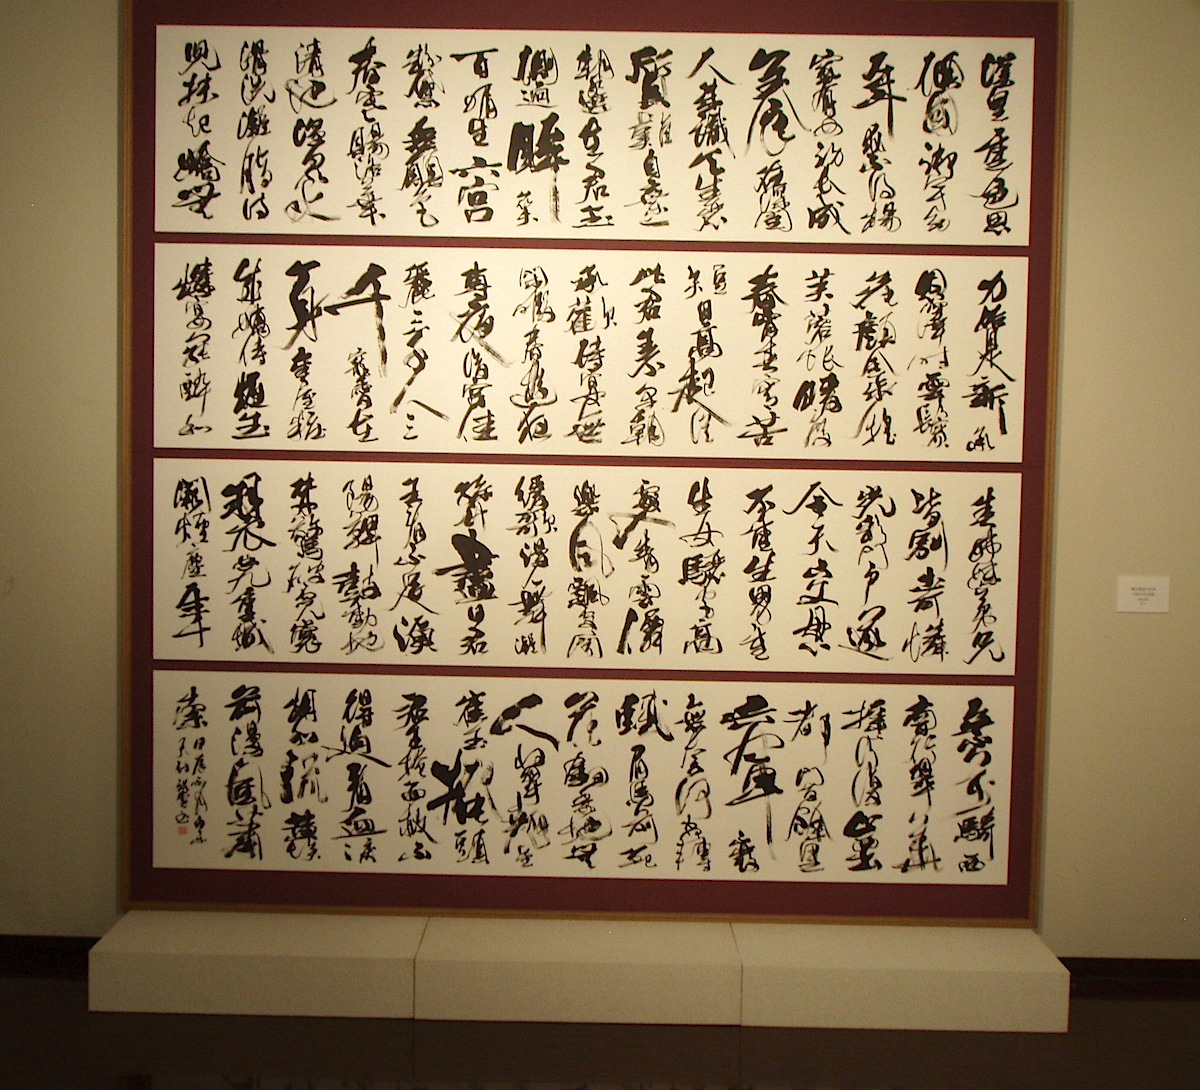 漢皇重色思
傾國御宇多
年求不得楊
家有女初長成
養在深閨
人未識天生麗
質難自棄一
朝選在君王
側迴眸一笑
百媚生六宮
粉黛無顏色
春寒賜浴華
清池溫泉水
滑洗凝脂侍
兒扶起嬌無
力始是新承
恩澤時雲鬢
花顏金步搖
芙蓉帳暖度
春宵春宵苦
短日高起從
此君王不早朝
承歡侍宴無
閑暇春從春遊夜
專夜後宮佳
麗三千人三
千寵愛在一
身金屋粧
成嬌侍夜玉
樓宴罷醉和
春姊妹弟兄
皆列土可憐
光彩生門戶遂
令天下父母心
不重生男重
生女驪宮高
處入青雲仙
樂風飄處處聞
緩歌慢舞凝
絲竹盡日君
王看不足漁
陽鼙鼓動地
來驚破霓裳
羽衣曲九重城
闕煙塵生千
乘萬騎西
南行翠華搖
搖行復止西出
都門百餘里
六軍不發
無奈何宛轉
蛾眉馬前死
花鈿委地無
人收翠翹金
雀玉搔頭君
王掩面救不
得迴看血淚
相和流黃埃
散漫風蕭
索